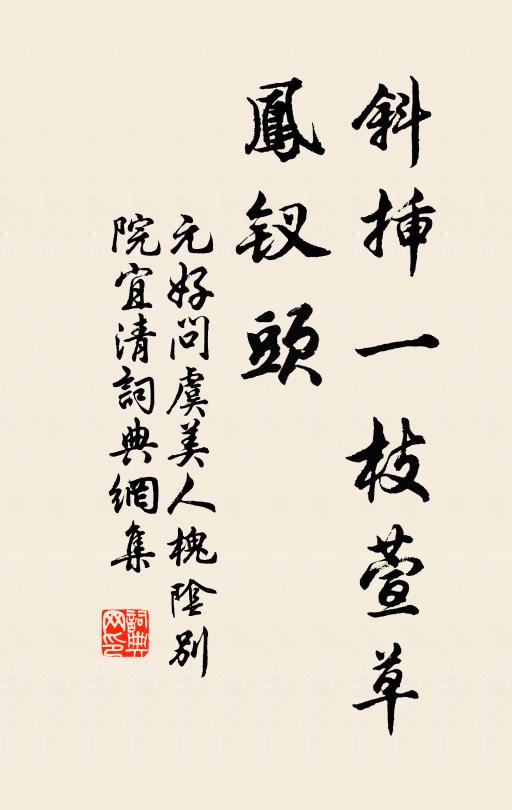 斜挿一枝萱草
鳳钗頭
元好问虞美人槐陰別
院宜清詞典網集
詞典
网印